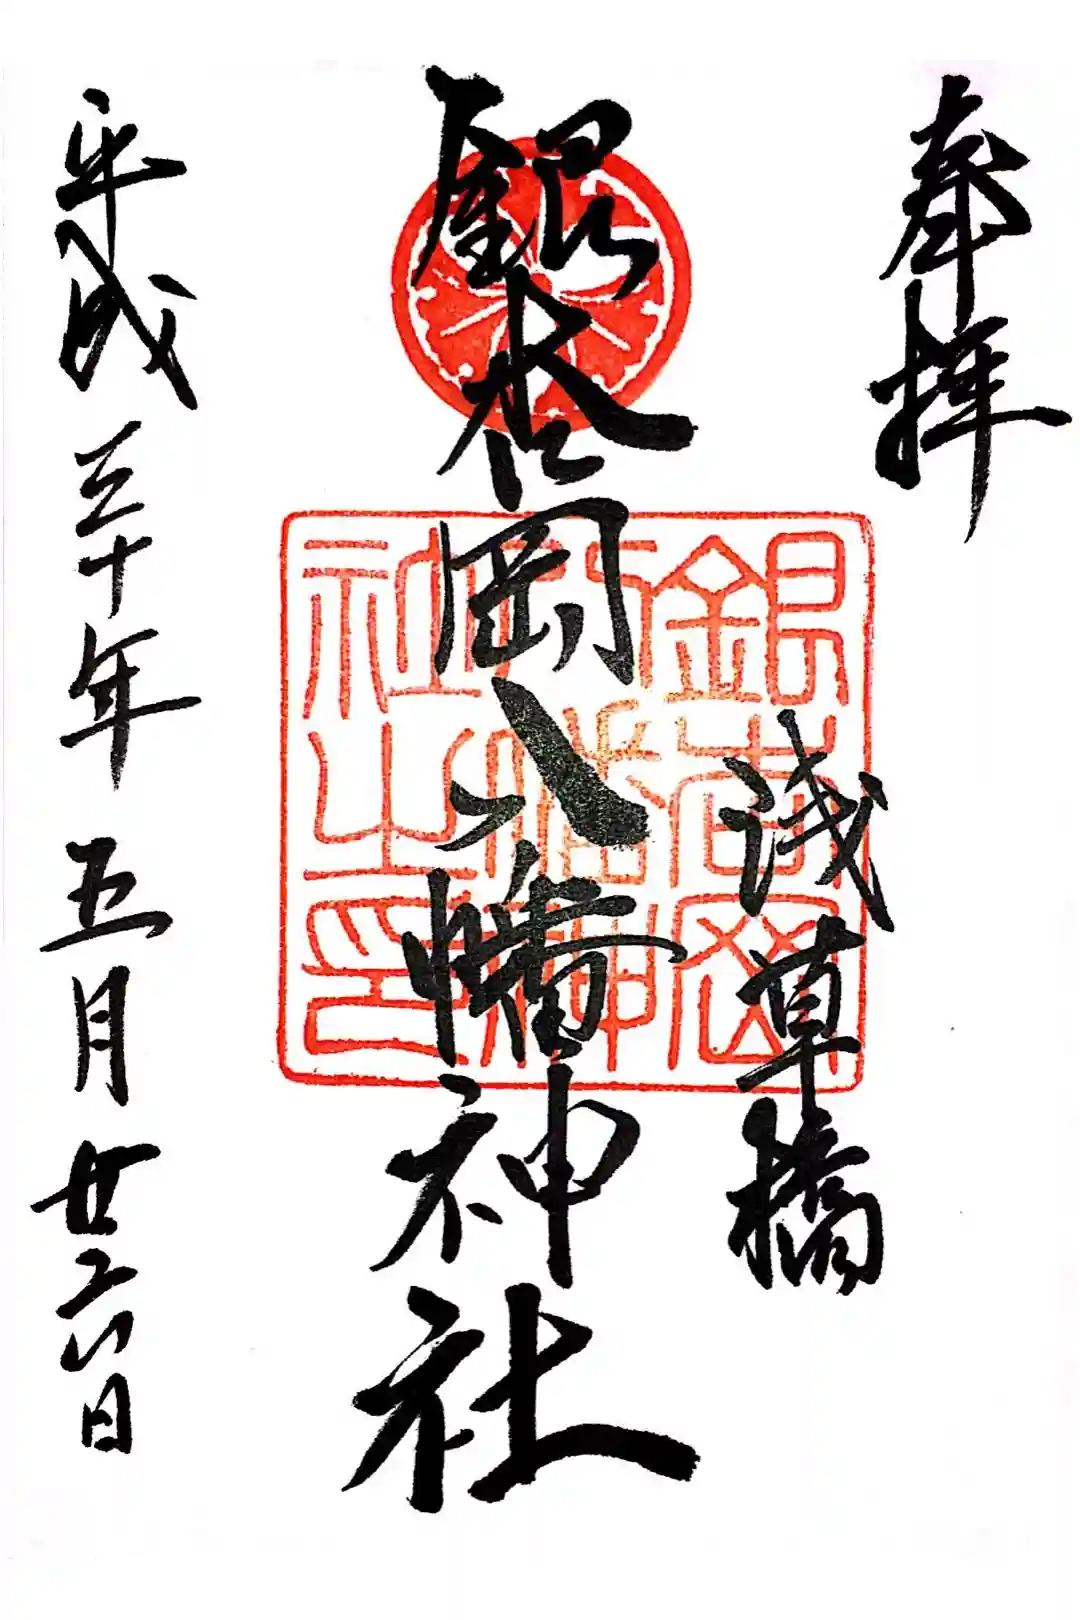 奉拝
浅草橋
銀杏岡八幡神社
銀杏岡
八幡神
社之印
平成三十年五月廿六日